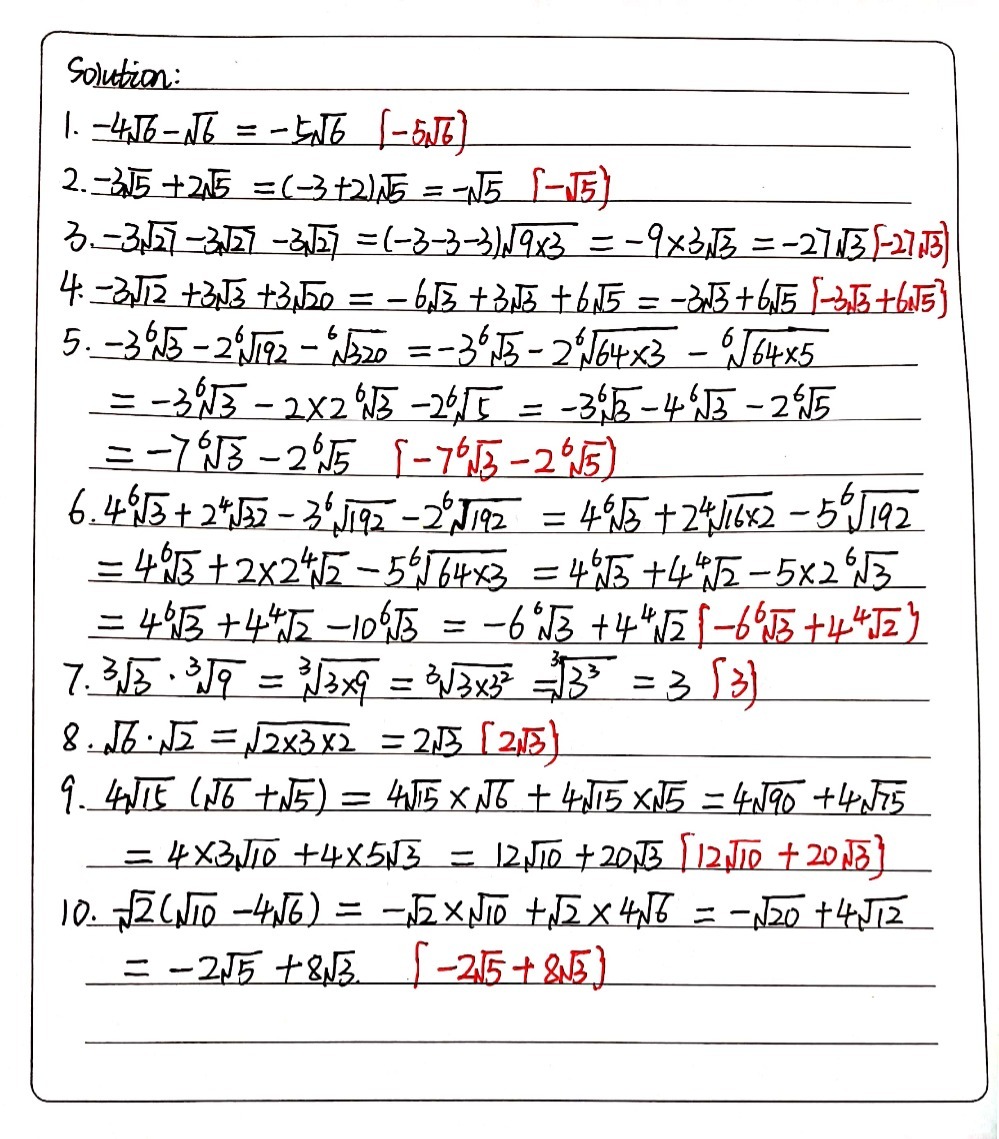 Solution:
1. -4√6 - √6 = -5√6 [-5√6]
2. -3√5 + 2√5 = (-3+2)√5 = -√5 [-√5]
3. -3√27 - 3√27 - 3√27 = (-3-3-3)√9×3 = -9×3√3 = -27√3 [-27√3]
4. -3√12 + 3√3 + 3√20 = -6√3 + 3√3 + 6√5 = -3√3 + 6√5 [-3√3 + 6√5]
5. -3⁶√3 - 2⁶√192 - ⁶√320 = -3⁶√3 - 2⁶√64×3 - ⁶√64×5
= -3⁶√3 - 2×2⁶√3 - 2⁶√5 = -3⁶√3 - 4⁶√3 - 2⁶√5
= -7⁶√3 - 2⁶√5 [-7⁶√3 - 2⁶√5]
6. 4⁶√3 + 2⁴√32 - 3⁶√192 - 2⁶√192 = 4⁶√3 + 2⁴√16×2 - 5⁶√192
= 4⁶√3 + 2×2⁴√2 - 5⁶√64×3 = 4⁶√3 + 4⁴√2 - 5×2⁶√3
= 4⁶√3 + 4⁴√2 - 10⁶√3 = -6⁶√3 + 4⁴√2 [-6⁶√3 + 4⁴√2]
7. ³√3 · ³√9 = ³√3×9 = ³√3×3² = ³√3³ = 3 [3]
8. √6 · √2 = √2×3×2 = 2√3 [2√3]
9. 4√15 (√6 + √5) = 4√15 × √6 + 4√15 × √5 = 4√90 + 4√75
= 4×3√10 + 4×5√3 = 12√10 + 20√3 [12√10 + 20√3]
10. -√2(√10 - 4√6) = -√2×√10 + √2×4√6 = -√20 + 4√12
= -2√5 + 8√3. [-2√5 + 8√3]